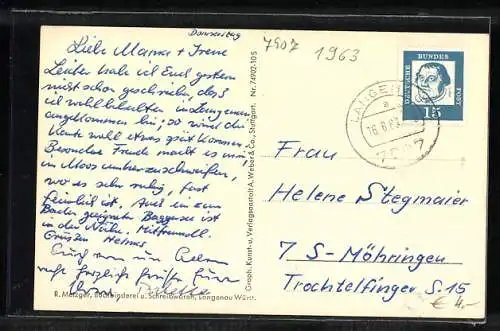 Donnerstag
Liebe Mama + Irene
Leider habe ich Euch gestern
nicht schon geschrieben, dass
ich wohlbehalten in Langenau
angekommen bin; so wird die
Karte wohl etwas spät kommen.
Besondere Freude macht es mir
im Moos umherzuschweifen,
wo es sehr ruhig, fast
ist. Auch ein zum
Baden geeigneter Baggersee ist
in der Nähe. Mit
Grüssen Helmut
Euch
recht herzliche Grüsse
R. Metzger, Buchbinderei u. Schreibwaren, Langenau Württ.
Graph. Kunst- u. Verlagsanstalt A. Weber & Co., Stuttgart. Nr. 7490-105
7907
1963
DEUTSCHE BUNDESPOST
15
LANGENAU
a
16.8.63
7907
Frau
Helene Stegmaier
7 S-Möhringen
Trochtelfinger S. 15
€ 4.-